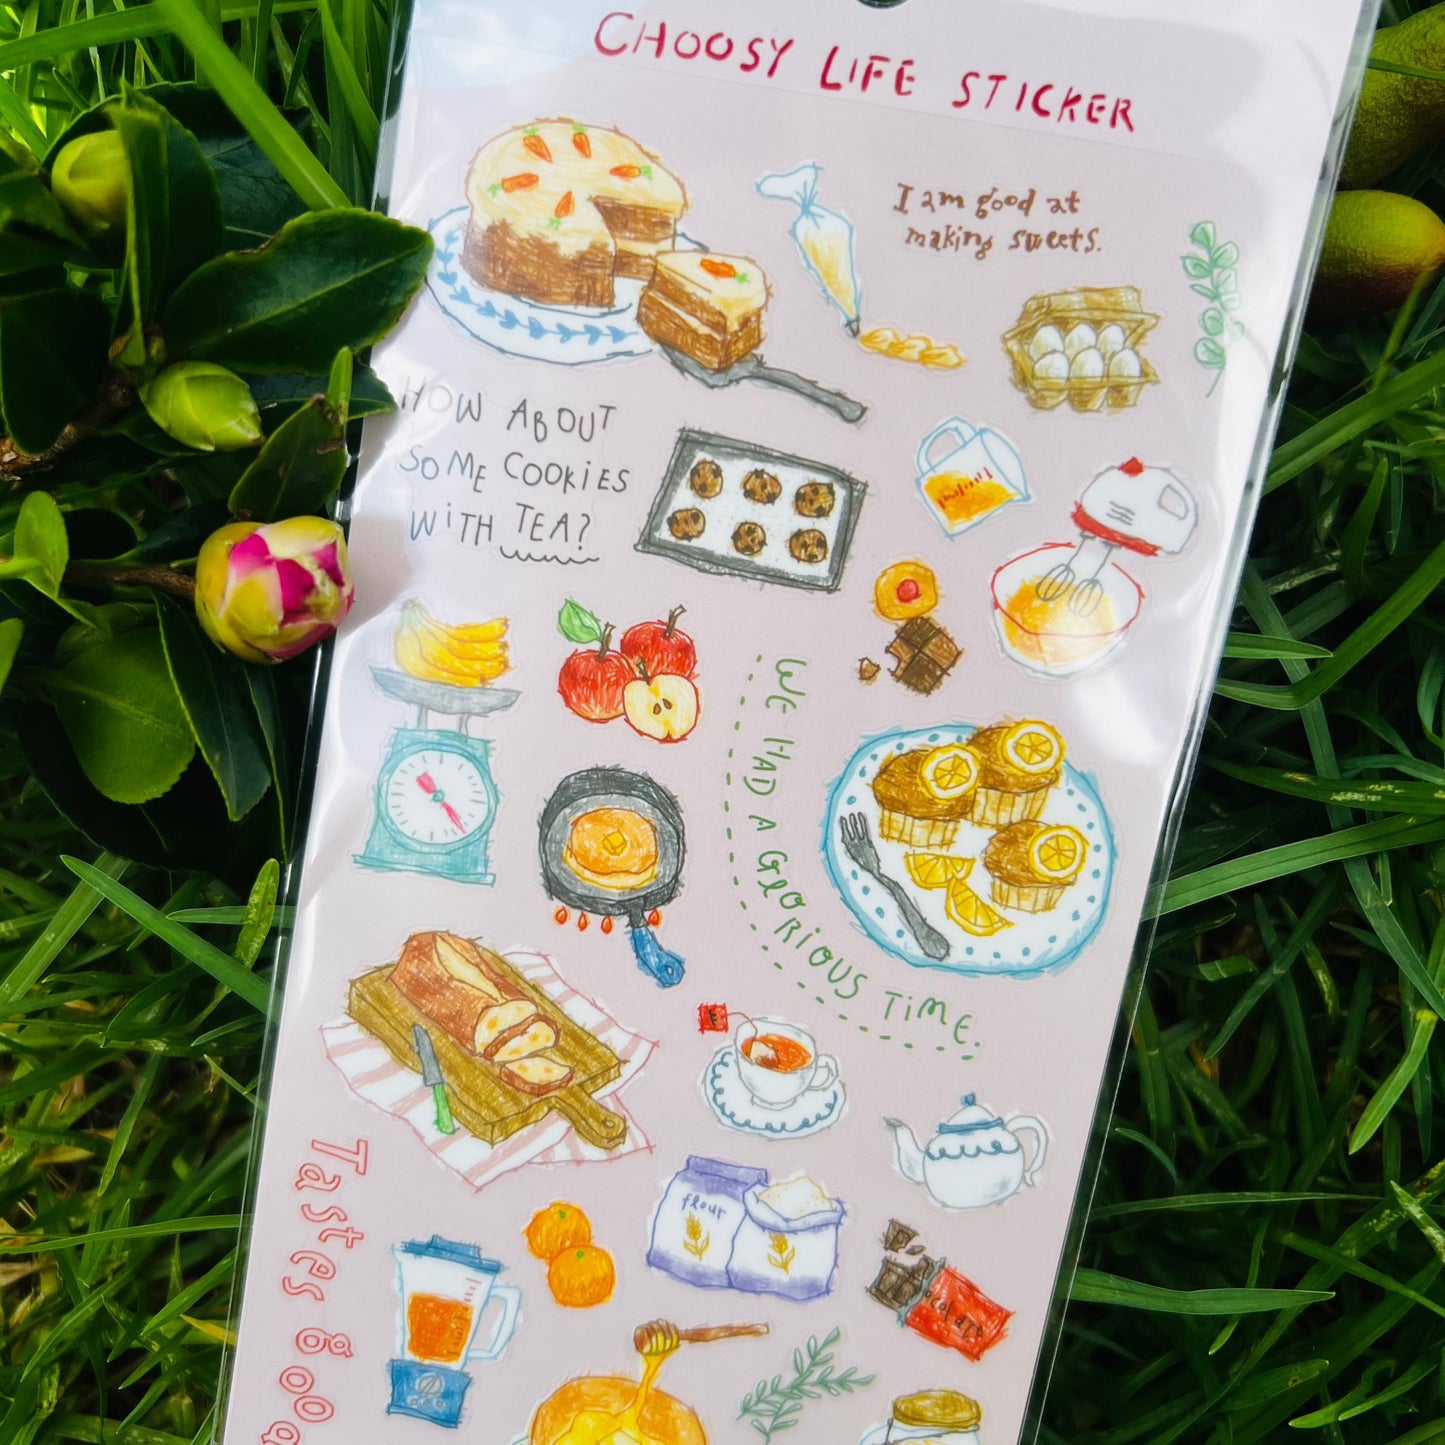 CHOOSY LIFE STICKER
I am good at
making sweets.
HOW ABOUT
SOME COOKIES
WITH TEA?
WE HAD A GLORIOUS TIME.
flour
Tastes good